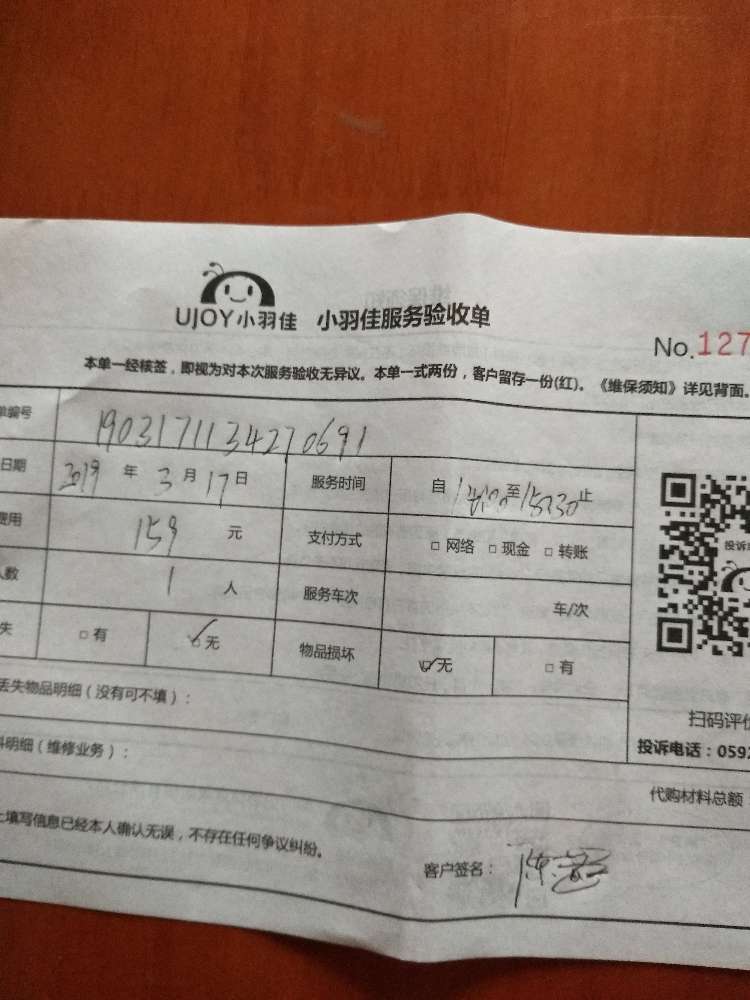 UJOY小羽佳 小羽佳服务验收单
No.127
本单一经核签，即视为对本次服务验收无异议。本单一式两份，客户留存一份(红)。《维保须知》详见背面。
单编号 1903171134270691
日期 2019 年 3 月 17 日 服务时间 自 至 15:30 止
费用 159 元 支付方式 □ 网络 □ 现金 □ 转账
人数 1 人 服务车次 车/次
失 □ 有 ☑ 无 物品损坏 ☑ 无 □ 有
投诉
扫码评价
丢失物品明细（没有可不填）：
投诉电话：0592
料明细（维修业务）：
代购材料总额
上填写信息已经本人确认无误，不存在任何争议纠纷。
客户签名：